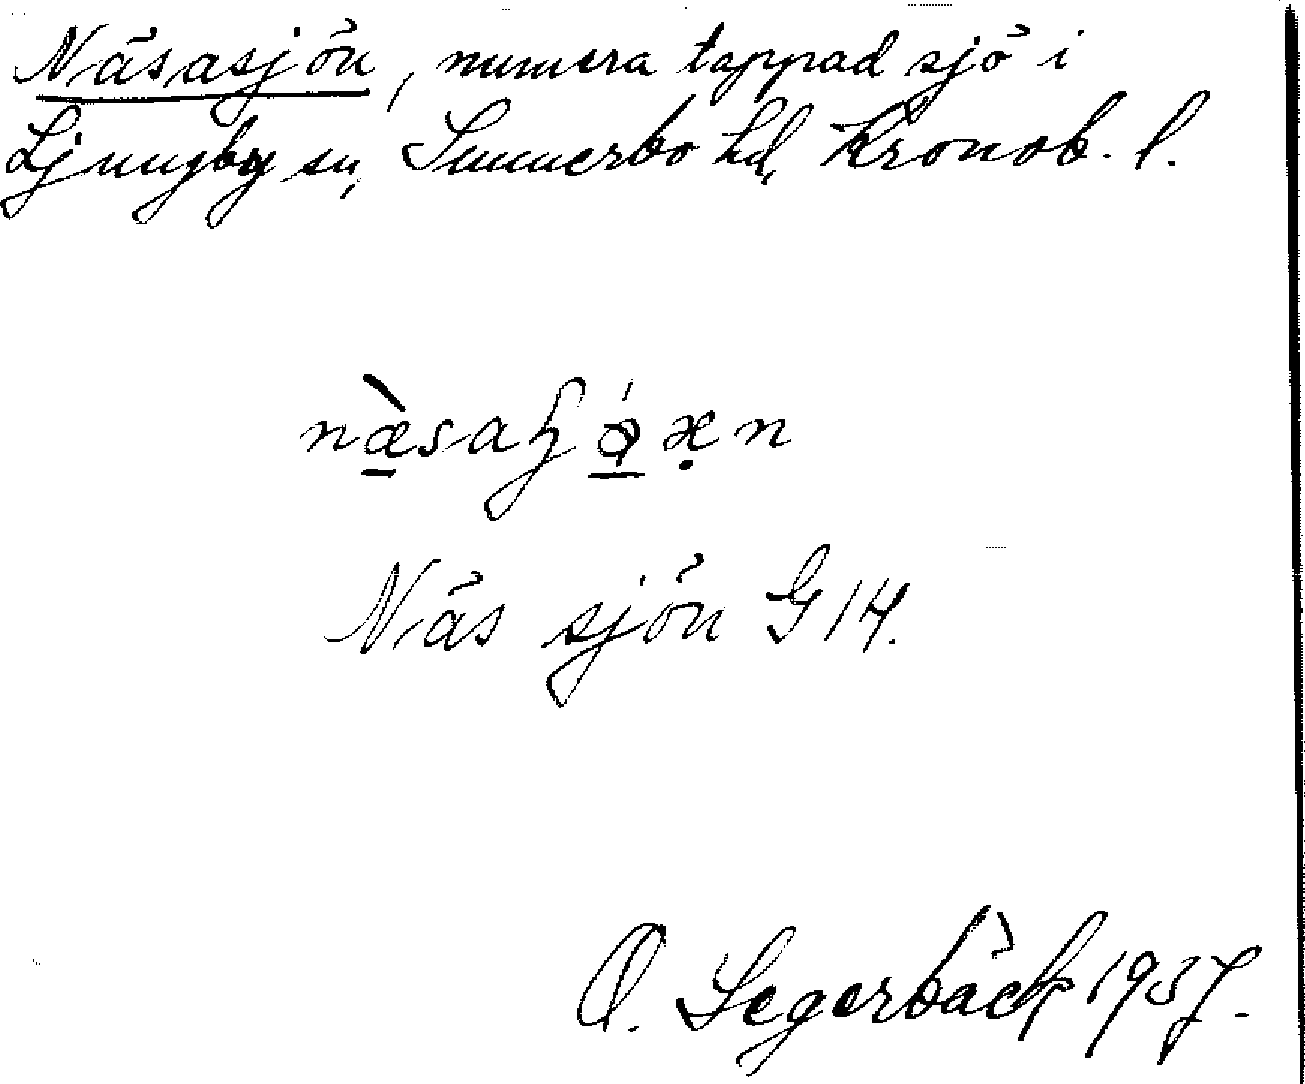 Näsasjön, numera tappad sjö i
Ljungby sn, Sunnerbo hd, Kronob. l.
Näs sjön G 14.
O. Segerbäck 1937.